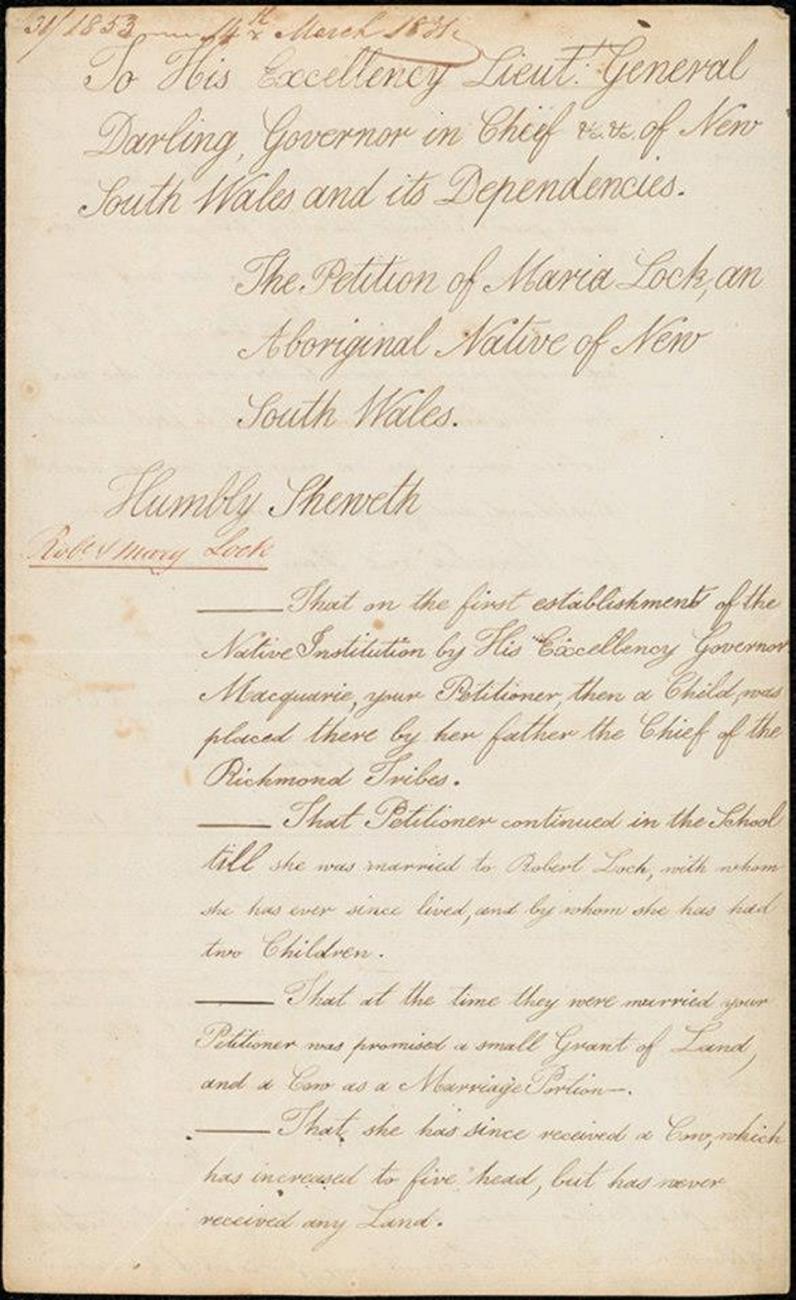 31/1853 14th March 1831
To His Excellency Lieut. General
Darling, Governor in Chief &c. &c. of New
South Wales and its Dependencies.
The Petition of Maria Lock, an
Aboriginal Native of New
South Wales.
Humbly Sheweth
Robt & Mary Lock
That on the first establishment of the
Native Institution by His Excellency Governor
Macquarie, your Petitioner, then a Child, was
placed there by her father the Chief of the
Richmond Tribes.
That Petitioner continued in the School
till she was married to Robert Lock, with whom
she has ever since lived, and by whom she has had
two Children.
That at the time they were married your
Petitioner was promised a small Grant of Land,
and a Cow as a Marriage Portion—.
That she has since received a Cow, which
has increased to five head, but has never
received any Land.